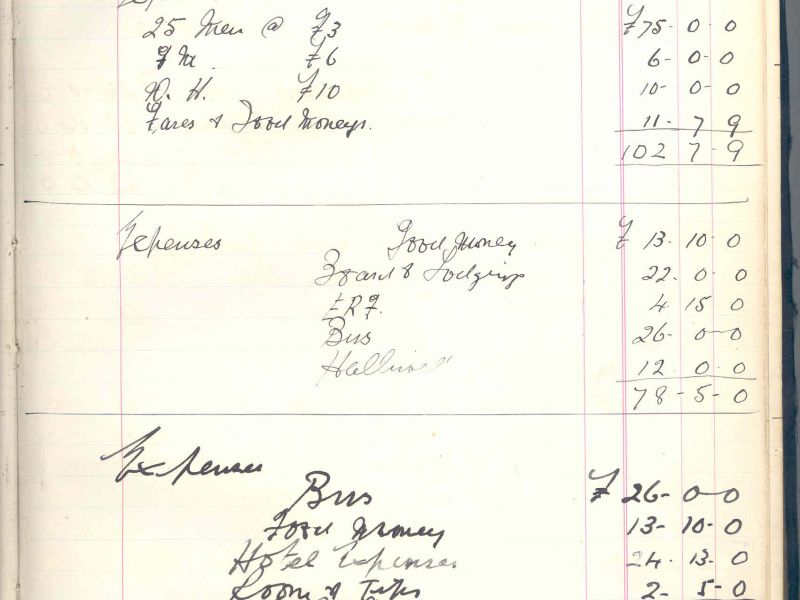 25 Men @ £3 £75-0-0
£6 6-0-0
£10 10-0-0
Fares & Food Moneys. 11-7 9
102 7-9
Expenses Food Money £ 13-10-0
Board & Lodgings 22-0-0
4-15 0
Bus 26-0-0
Halliwell 12 0 0
78-5-0
Expenses
Bus £ 26-0-0
Food Money 13-10-0
Hotel Expenses 24-13-0
Room & Tips 2-5-0